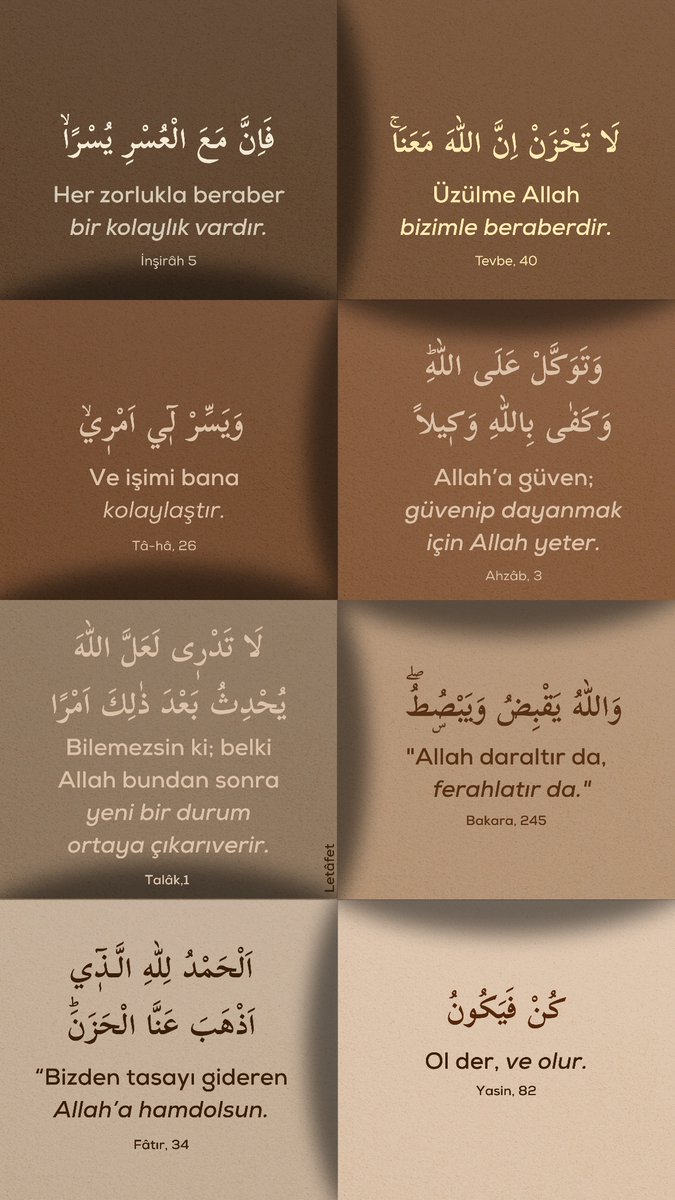 فَاِنَّ مَعَ الْعُسْرِ يُسْرًاۙ
Her zorlukla beraber
bir kolaylık vardır.
İnşirâh 5
لَا تَحْزَنْ اِنَّ اللّٰهَ مَعَنَاۚ
Üzülme Allah
bizimle beraberdir.
Tevbe, 40
وَيَسِّرْ ل۪ٓي اَمْر۪يۙ
Ve işimi bana
kolaylaştır.
Tâ-hâ, 26
وَتَوَكَّلْ عَلَى اللّٰهِۜ
وَكَفٰى بِاللّٰهِ وَك۪يلاً
Allah’a güven;
güvenip dayanmak
için Allah yeter.
Ahzâb, 3
لَا تَدْر۪ى لَعَلَّ اللّٰهَ
يُحْدِثُ بَعْدَ ذٰلِكَ اَمْرًا
Bilemezsin ki; belki
Allah bundan sonra
yeni bir durum
ortaya çıkarıverir.
Talâk,1
Letâfet
وَاللّٰهُ يَقْبِضُ وَيَبْصُۣطُۖ
"Allah daraltır da,
ferahlatır da."
Bakara, 245
اَلْحَمْدُ لِلّٰهِ الَّـذ۪ٓي
اَذْهَبَ عَنَّا الْحَزَنَۜ
“Bizden tasayı gideren
Allah’a hamdolsun.
Fâtır, 34
كُنْ فَيَكُونُ
Ol der, ve olur.
Yasin, 82